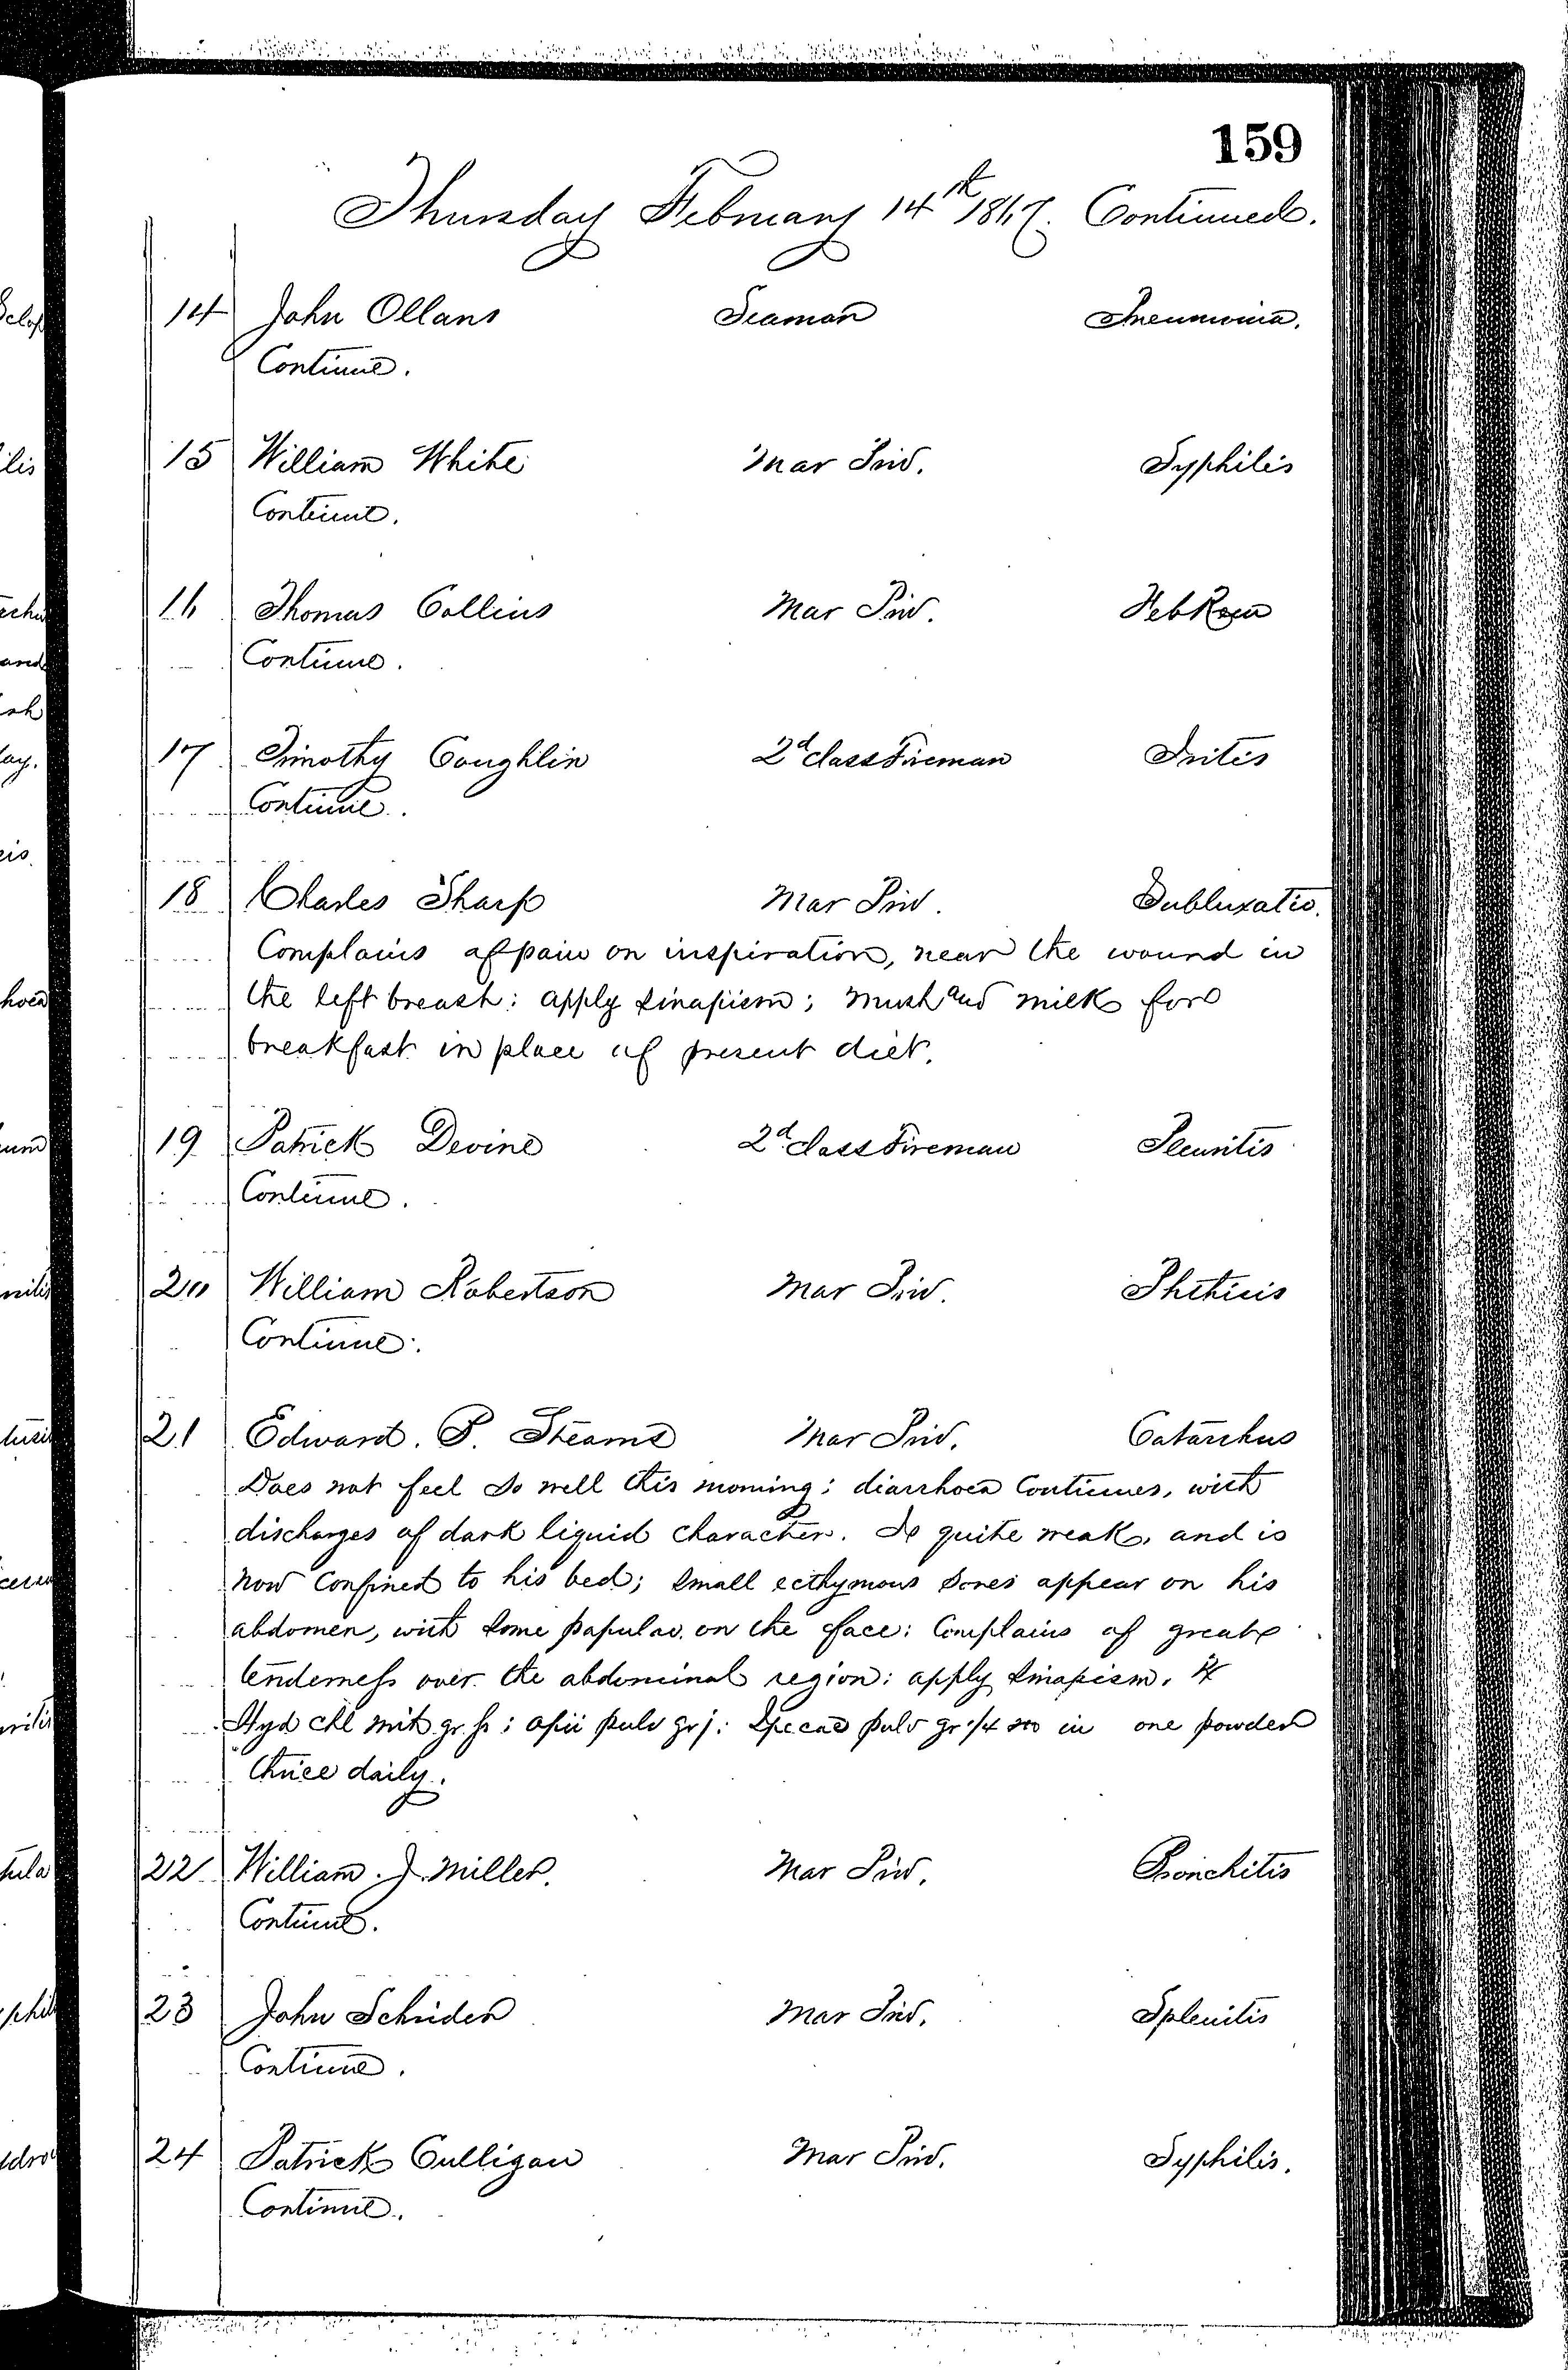 159
Thursday February 14th 1867. Continued.
14 John Ollans Seaman Pneumonia.
Continue.
15 William White Mar Priv. Syphilis
Continue.
16 Thomas Collins Mar Priv. Feb Rem
Continue.
17 Timothy Coughlin 2d class Fireman Iritis
Continue.
18 Charles Sharp Mar Priv. Subluxatio.
Complains of pain on inspiration, near the wound in
the left breast: apply sinapism; mush and milk for
breakfast in place of present diet.
19 Patrick Devine 2d class Fireman Pleuritis
Continue.
20 William Robertson Mar Priv. Phthisis
Continue.
21 Edward. P. Stearns Mar Priv. Catarrhus
Does not feel so well this morning: diarrhoea continues, with
discharges of dark liquid character. Is quite weak, and is
now confined to his bed; small ecthymous sores appear on his
abdomen, with some papular on the face: Complains of great
tenderness over the abdominal region: apply sinapism. ℞
Hyd chl mit gr. ss: opii pulv gr j: Ipecac pulv gr 1/4 in one powder
thrice daily.
22 William. J. Miller. Mar Priv. Bronchitis
Continue.
23 John Schrider Mar Priv. Splenitis
Continue.
24 Patrick Culligan Mar Priv. Syphilis.
Continue.